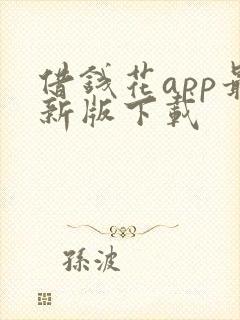 借錢花app最
新版下載
孫波